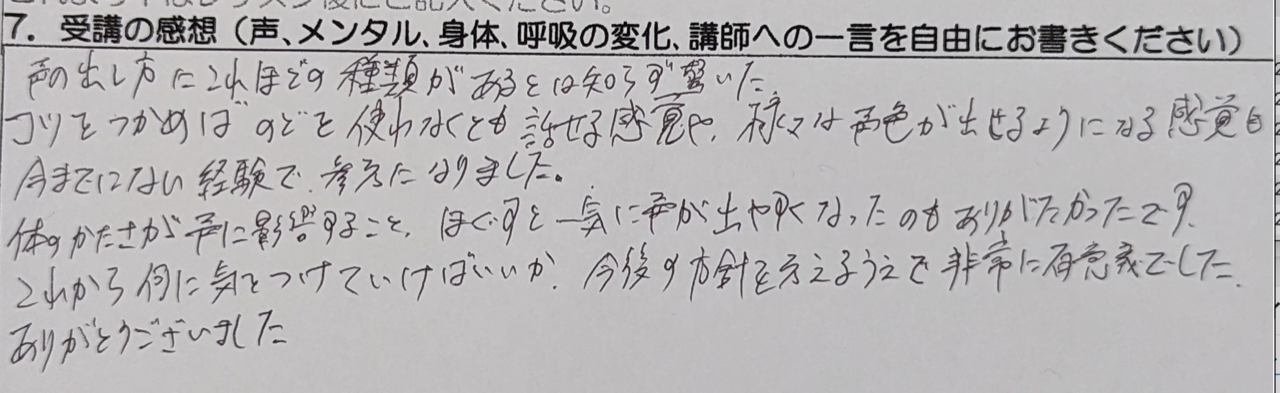 7. 受講の感想（声、メンタル、身体、呼吸の変化、講師への一言を自由にお書きください）
声の出し方にこれほどの種類があるとは知らず驚いた。
コツをつかめばのどを使わなくとも話せる感覚や、様々な声色が出せるようになる感覚も
今までにない経験で、参考になりました。
体のかたさが声に影響すること、ほぐすと一気に声が出やすくなったのもありがたかったです。
これから何に気をつけていけばいいか、今後の方針を考えるうえで非常に有意義でした。
ありがとうございました